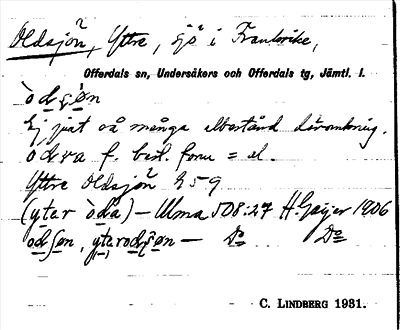 Oldsjön, Yttre, sjö i Frankrike,
Offerdals sn, Undersåkers och Offerdals tg, Jämtl. l.
òdsøn
Ej just så många
òdra f. best. form = el.
Yttre Oldsjön 259
(ytar òda) – Ulma 508:27 H. Geijer 1906
odsøn, ytarodsøn – Do Do
C. LINDBERG 1931.